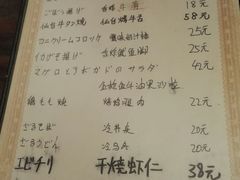 ごぼう唐揚 吉炸牛蒡 18元
仙台牛タン焼 仙台烤牛舌 58元
カニクリームコロッケ 蟹味奶汁 25元
いかげそ揚げ 吉炸鱿鱼须 25元
マグロとアボカドのサラダ 42元
金枪鱼牛油果沙拉
鶏もも焼 烤鸡腿肉 22元
ざるそば 冷荞麦 20元
ざるうどん 冷乌冬 20元
エビチリ 干烧虾仁 38元